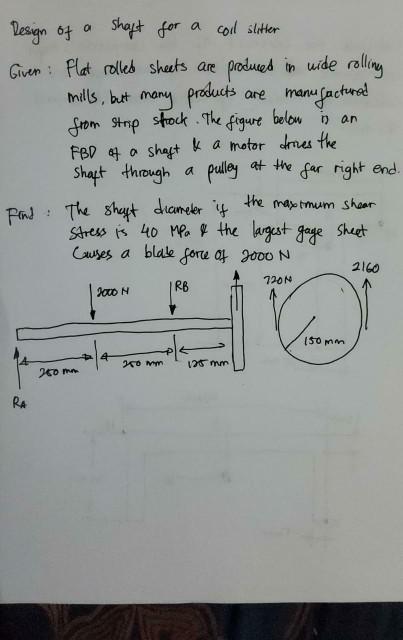 Design of a shaft for a coil slitter
Given : Flat rolled sheets are produced in wide rolling
mills, but many products are manufactured
from strip stock. The figure below is an
FBD of a shaft & a motor drives the
shaft through a pulley at the far right end.
Find : The shaft diameter if the maximum shear
stress is 40 MPa & the largest gage sheet
causes a blade force of 2000 N
2000 N
RB
720N
2160
150 mm
250 mm
250 mm
125 mm
RA